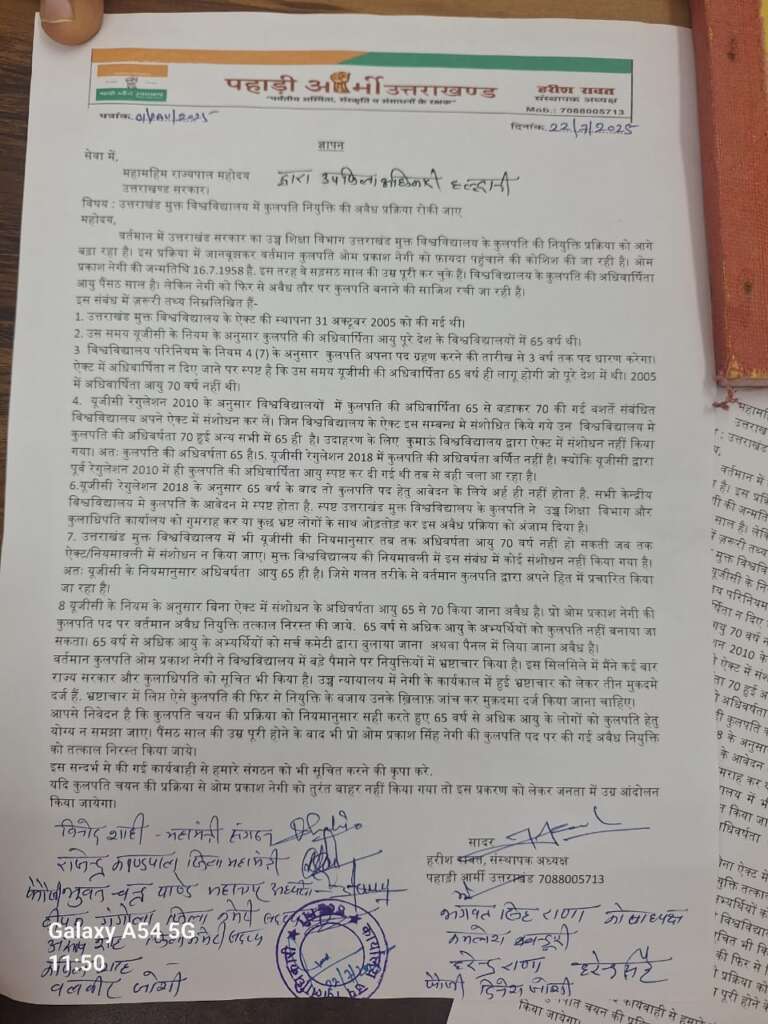 पहाड़ी आर्मी उत्तराखण्ड
"पर्वतीय अस्मिता, संस्कृति व संसाधनों के रक्षक"
हरीश रावत
संस्थापक अध्यक्ष
Mob.: 7088005713
पत्रांक.
दिनांक. 22/7/2025
ज्ञापन
सेवा में,
महामहिम राज्यपाल महोदय
द्वारा उपजिलाधिकारी हल्द्वानी
उत्तराखण्ड सरकार।
विषय : उत्तराखंड मुक्त विश्वविद्यालय में कुलपति नियुक्ति की अवैध प्रक्रिया रोकी जाए
महोदय,
वर्तमान में उत्तराखंड सरकार का उच्च शिक्षा विभाग उत्तराखंड मुक्त विश्वविद्यालय के कुलपति की नियुक्ति प्रक्रिया को आगे
बढ़ा रहा है। इस प्रक्रिया में जानबूझकर वर्तमान कुलपति ओम प्रकाश नेगी को फ़ायदा पहुंचाने की कोशिश की जा रही है। ओम
प्रकाश नेगी की जन्मतिथि 16.7.1958 है. इस तरह वे सड़सठ साल की उम्र पूरी कर चुके हैं। विश्वविद्यालय के कुलपति की अधिवार्षिता
आयु पैंसठ साल है। लेकिन नेगी को फिर से अवैध तौर पर कुलपति बनाने की साजिश रची जा रही है।
इस संबंध में ज़रूरी तथ्य निम्नलिखित हैं-
1. उत्तराखंड मुक्त विश्वविद्यालय के ऐक्ट की स्थापना 31 अक्टूबर 2005 को की गई थी।
2. उस समय यूजीसी के नियम के अनुसार कुलपति की अधिवार्षिता आयु पूरे देश के विश्वविद्यालयों में 65 वर्ष थी।
3 विश्वविद्यालय परिनियम के नियम 4 (7) के अनुसार कुलपति अपना पद ग्रहण करने की तारीख से 3 वर्ष तक पद धारण करेगा।
ऐक्ट में अधिवार्षिता न दिए जाने पर स्पष्ट है कि उस समय यूजीसी की अधिवार्षिता 65 वर्ष ही लागू होगी जो पूरे देश में थी। 2005
में अधिवार्षिता आयु 70 वर्ष नहीं थी।
4. यूजीसी रेगुलेशन 2010 के अनुसार विश्वविद्यालयों में कुलपति की अधिवार्षिता 65 से बढाकर 70 की गई बशर्ते संबंधित
विश्वविद्यालय अपने ऐक्ट में संशोधन कर लें। जिन विश्वविद्यालय के ऐक्ट इस सम्बन्ध मे संशोधित किये गये उन विश्वविद्यालय मे
कुलपति की अधिवर्षता 70 हुई अन्य सभी में 65 ही है। उदाहरण के लिए कुमाऊं विश्वविद्यालय द्वारा ऐक्ट में संशोधन नहीं किया
गया। अतः कुलपति की अधिवर्षता 65 है।5. यूजीसी रेगुलेशन 2018 में कुलपति की अधिवर्षता वर्णित नहीं है। क्योंकि यूजीसी द्वारा
पूर्व रेगुलेशन 2010 में ही कुलपति की अधिवार्षिता आयु स्पष्ट कर दी गई थी तब से वही चला आ रहा है।
6.यूजीसी रेगुलेशन 2018 के अनुसार 65 वर्ष के बाद तो कुलपति पद हेतु आवेदन के लिये अर्ह ही नहीं होता है. सभी केन्द्रीय
विश्वविद्यालय मे कुलपति के आवेदन मे स्पष्ट होता है. स्पष्ट उत्तराखंड मुक्त विश्वविद्यालय के कुलपति ने उच्च शिक्षा विभाग और
कुलाधिपति कार्यालय को गुमराह कर या कुछ भ्रष्ट लोगों के साथ जोड़तोड़ कर इस अवैध प्रक्रिया को अंजाम दिया है।
7. उत्तराखंड मुक्त विश्वविद्यालय में भी यूजीसी की नियमानुसार तब तक अधिवर्षता आयु 70 वर्ष नहीं हो सकती जब तक
ऐक्ट/नियमावली में संशोधन न किया जाए। मुक्त विश्वविद्यालय की नियमावली में इस संबंध में कोई संशोधन नहीं किया गया है।
अतः यूजीसी के नियमानुसार अधिवर्षता आयु 65 ही है। जिसे गलत तरीके से वर्तमान कुलपति द्वारा अपने हित में प्रचारित किया
जा रहा है।
8 यूजीसी के नियम के अनुसार बिना ऐक्ट में संशोधन के अधिवर्षता आयु 65 से 70 किया जाना अवैध है। प्रो ओम प्रकाश नेगी की
कुलपति पद पर वर्तमान अवैध नियुक्ति तत्काल निरस्त की जाये. 65 वर्ष से अधिक आयु के अभ्यर्थियों को कुलपति नहीं बनाया जा
सकता। 65 वर्ष से अधिक आयु के अभ्यर्थियों को सर्च कमेटी द्वारा बुलाया जाना अथवा पैनल में लिया जाना अवैध है।
वर्तमान कुलपति ओम प्रकाश नेगी ने विश्वविद्यालय में बड़े पैमाने पर नियुक्तियों में भ्रष्टाचार किया है। इस सिलसिले में मैंने कई बार
राज्य सरकार और कुलाधिपति को सूचित भी किया है। उच्च न्यायालय में नेगी के कार्यकाल में हुई भ्रष्टाचार को लेकर तीन मुकदमे
दर्ज हैं. भ्रष्टाचार में लिप्त ऐसे कुलपति की फिर से नियुक्ति के बजाय उनके ख़िलाफ़ जांच कर मुक़दमा दर्ज किया जाना चाहिए।
आपसे निवेदन है कि कुलपति चयन की प्रक्रिया को नियमानुसार सही करते हुए 65 वर्ष से अधिक आयु के लोगों को कुलपति हेतु
योग्य न समझा जाए। पैंसठ साल की उम्र पूरी होने के बाद भी प्रो ओम प्रकाश सिंह नेगी की कुलपति पद पर की गई अवैध नियुक्ति
को तत्काल निरस्त किया जाये।
इस सन्दर्भ मे की गई कार्यवाही से हमारे संगठन को भी सूचित करने की कृपा करे.
यदि कुलपति चयन की प्रक्रिया से ओम प्रकाश नेगी को तुरंत बाहर नहीं किया गया तो इस प्रकरण को लेकर जनता में उग्र आंदोलन
किया जायेगा।
विनोद शाही - महामंत्री संगठन
राजेन्द्र काण्डपाल जिला महामंत्री
फौजी भुवन चन्द्र पाण्डे महानगर अध्यक्ष
सादर
हरीश रावत, संस्थापक अध्यक्ष
पहाड़ी आर्मी उत्तराखंड 7088005713
भगवत सिंह राणा कोषाध्यक्ष
कमलेश
हरेन्द्र राणा
फौजी दिनेश जोशी
बलवीर जोशी
Galaxy A54 5G
11:50